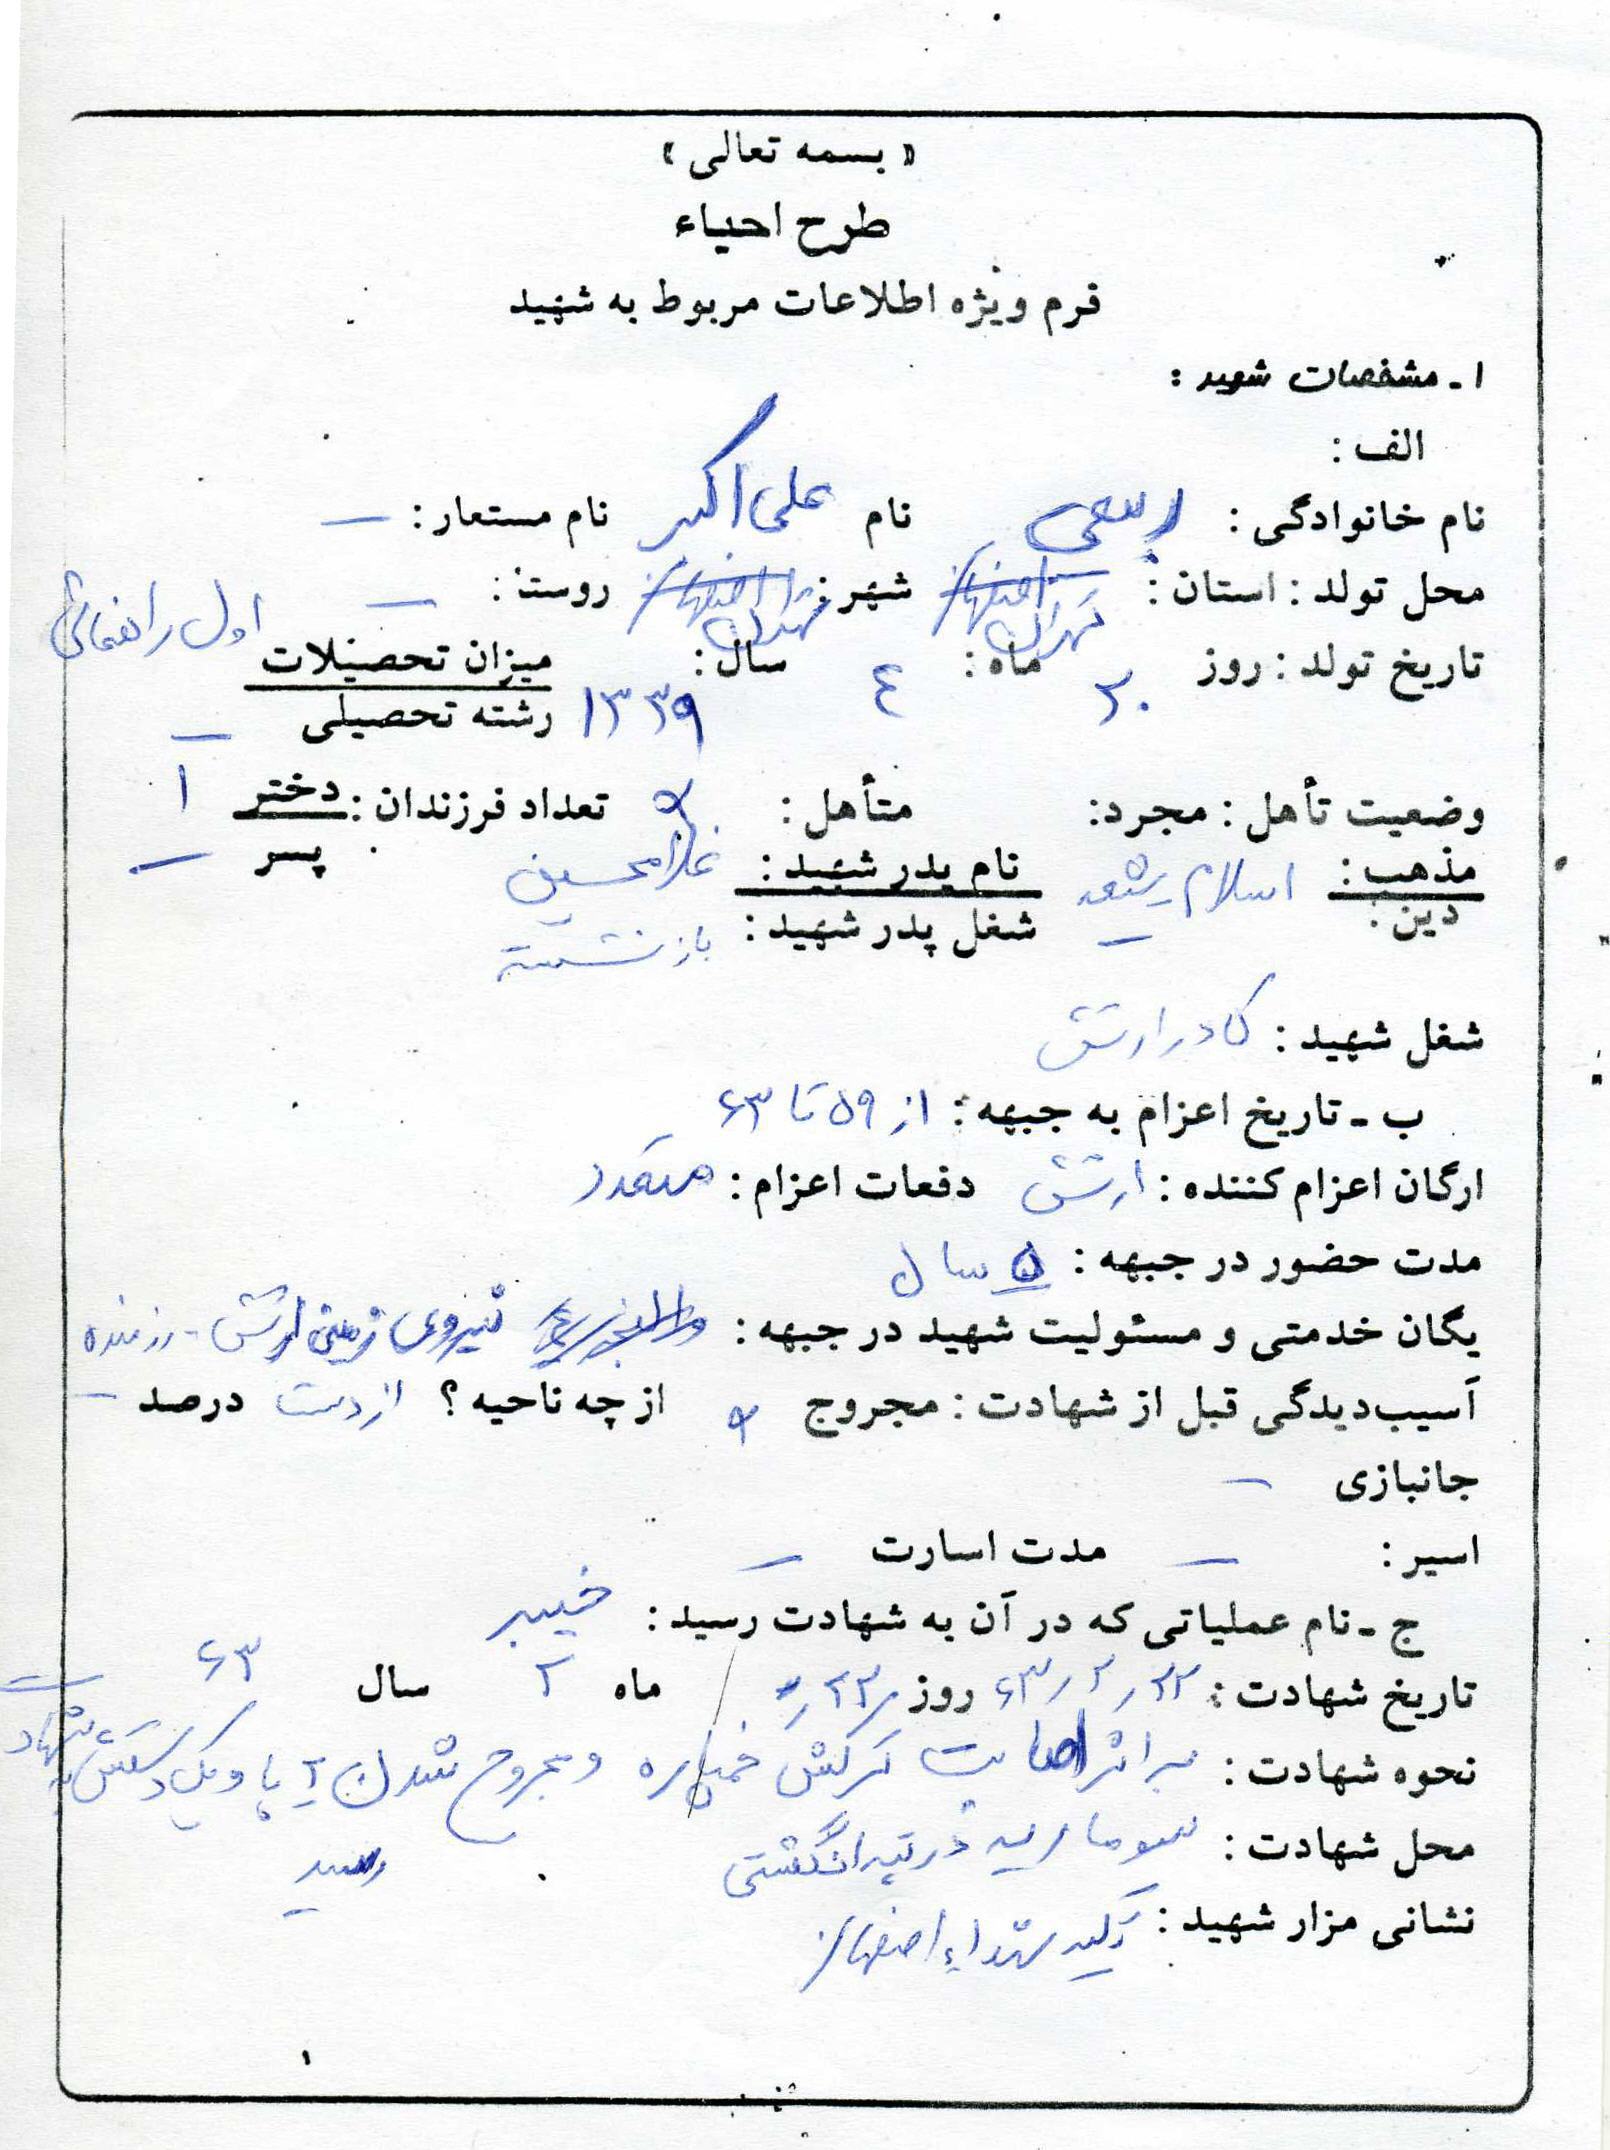 « بسمه تعالی »
طرح احیاء
فرم ویژه اطلاعات مربوط به شهید
۱ ـ مشخصات شهید :
الف :
نام خانوادگی : ربیعی نام علی اکبر نام مستعار : —
محل تولد : استان : تهران شهر : تهران روستا : —
تاریخ تولد : روز ۲۰ ماه : ٤ سال : ۱۳۳۹ میزان تحصیلات اول راهنمائی
رشته تحصیلی —
وضعیت تأهل : مجرد : متأهل : تعداد فرزندان : دختر ۱
پسر —
مذهب : اسلام شیعه نام پدر شهید : غلامحسین
دین : — شغل پدر شهید : بازنشسته
شغل شهید : کادر ارتش
ب ـ تاریخ اعزام به جبهه : از ۵۹ تا ۶۳
ارگان اعزام کننده : ارتش دفعات اعزام : متعدد
مدت حضور در جبهه : ۵ سال
یگان خدمتی و مسئولیت شهید در جبهه : نیروی زمینی ارتش - رزمنده
آسیب‌دیدگی قبل از شهادت : مجروح از چه ناحیه ؟ از دست درصد —
جانبازی —
اسیر : — مدت اسارت —
ج ـ نام عملیاتی که در آن به شهادت رسید : خیبر
تاریخ شهادت : ۶۳/۲/۲۲ روز ۲۳ ماه ۲ سال ۶۳
نحوه شهادت : بر اثر اصابت ترکش خمپاره و مجروح شدن ۲ پا و یک دستش به شهادت
رسید
محل شهادت : سومار در تپه انگشتی
نشانی مزار شهید : تکیه شهداء اصفهان
۱